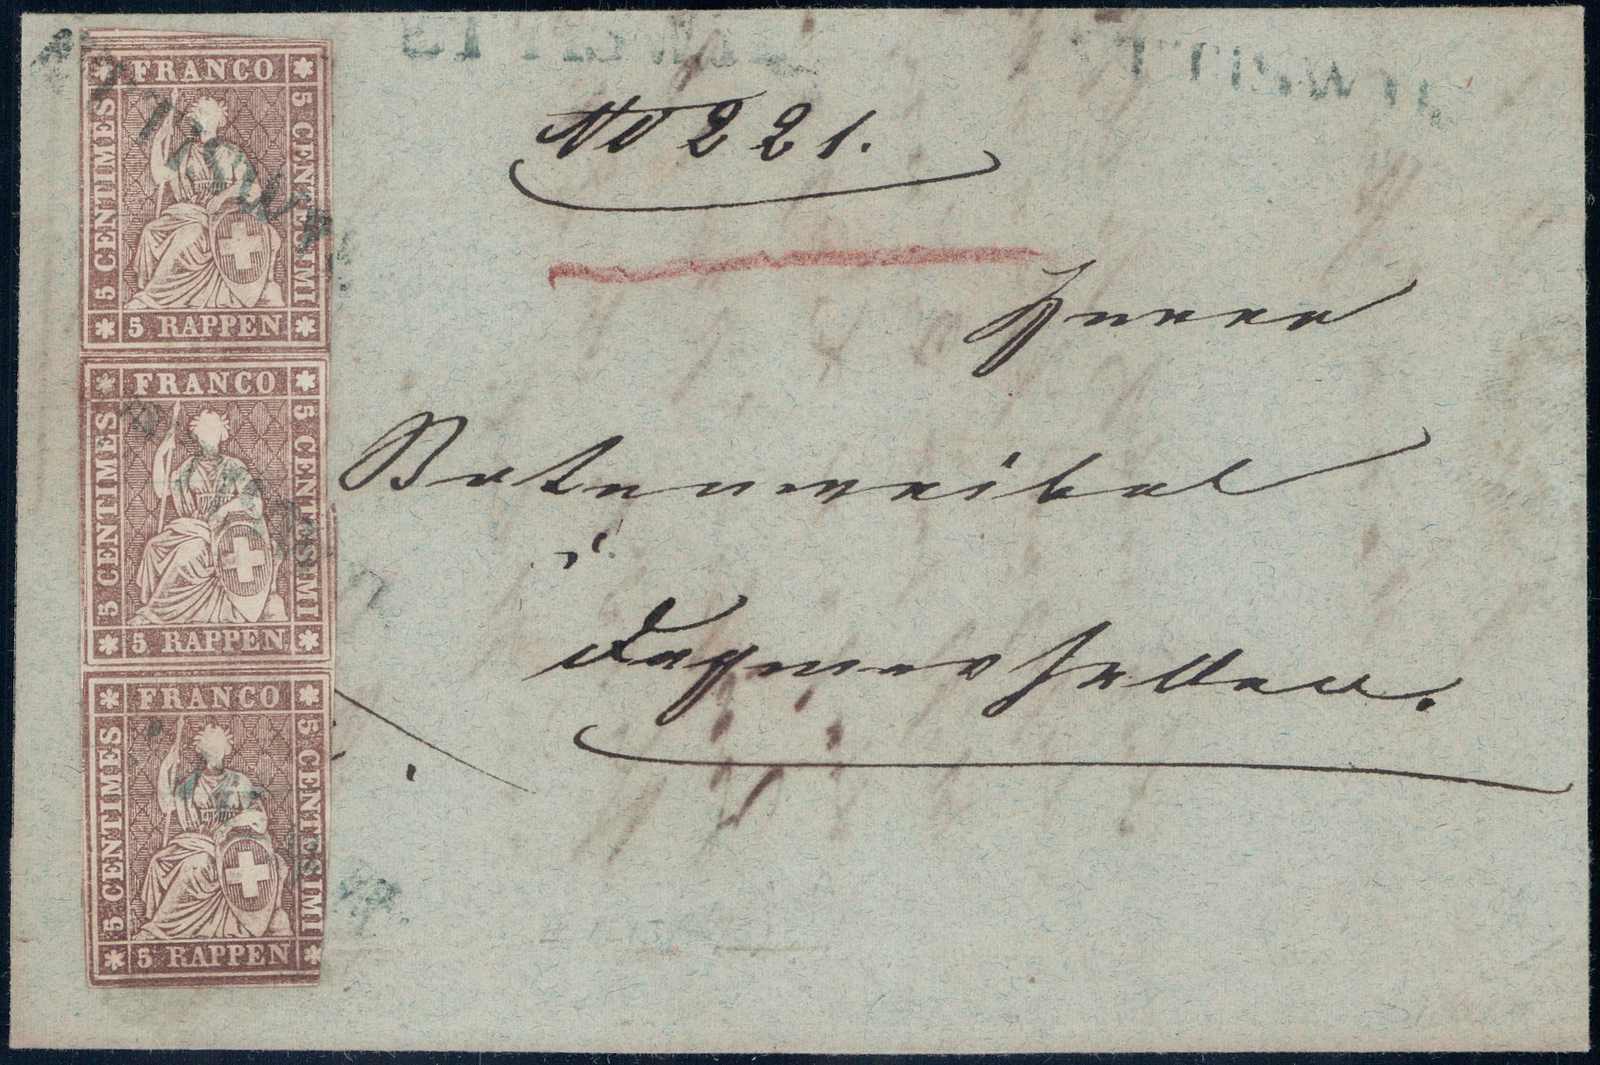 FRANCO
5 CENTIMES
5 CENTESIMI
5 RAPPEN
FRANCO
5 CENTIMES
5 CENTESIMI
5 RAPPEN
FRANCO
5 CENTIMES
5 CENTESIMI
5 RAPPEN
No 221.
Herrn
Botenweibel
in
Dagmersellen.